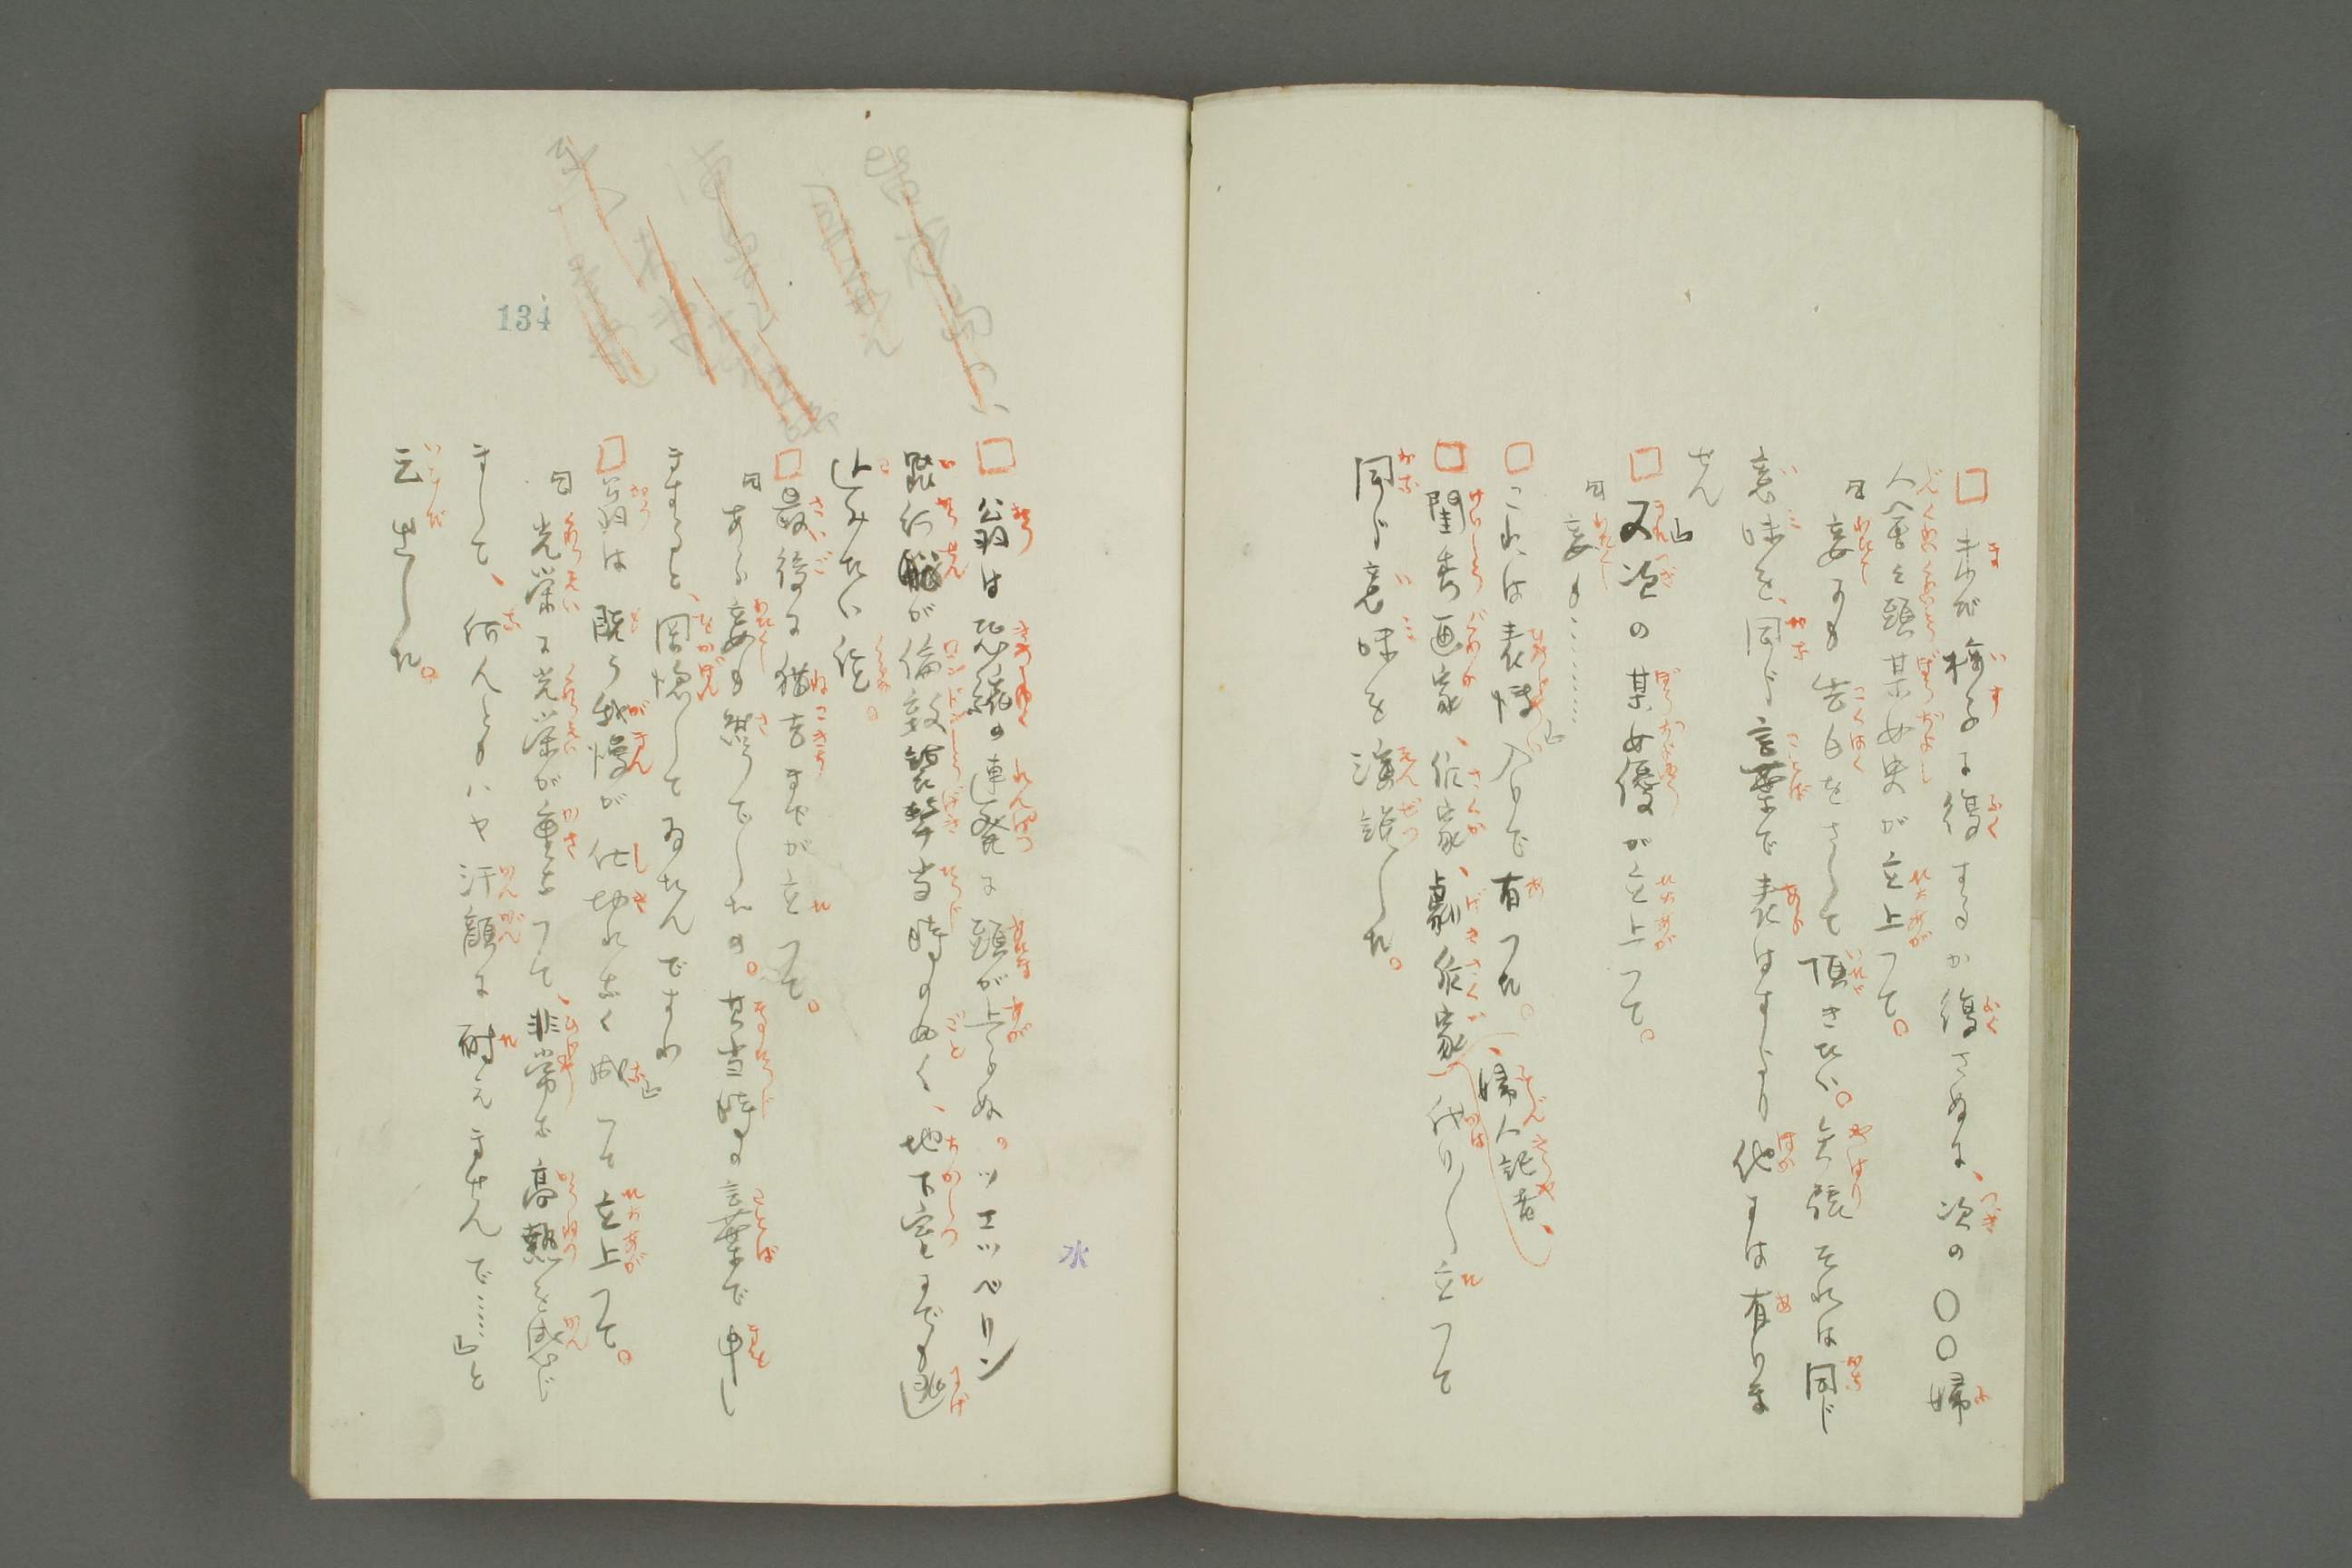 □未だ椅子に復するか復さぬに、次の〇〇婦
人会々頭某女史が立上つて。
「妾にも告白をさして頂きたい。矢張それは同じ
意味を、同じ言葉で表はすより他には有りま
せん」
□又次の某女優が立上つて。
「妾も…………」
□これは表情入りで有つた。
、婦人記者、
□閨秀画家、作家、劇作家代り〳〵立つて
同じ意味を演説した。
□翁は恐縮の連発に頭が上らぬ。ツエツペリン
飛行船が倫敦襲撃当時の如く、地下室までも逃
込みたい位。
□最後に猫吉までが立つて。
「あら妾も然うでしたの。其当時の言葉で申し
ますると、岡惚してゐたんですわ」
□翁は既う我慢が仕切れなく成つて立上つて。
「光栄に光栄が重なつて、非常な高熱を感じ
まして、何んともハヤ汗顔に耐えませんで……」と
云出した。
134
水